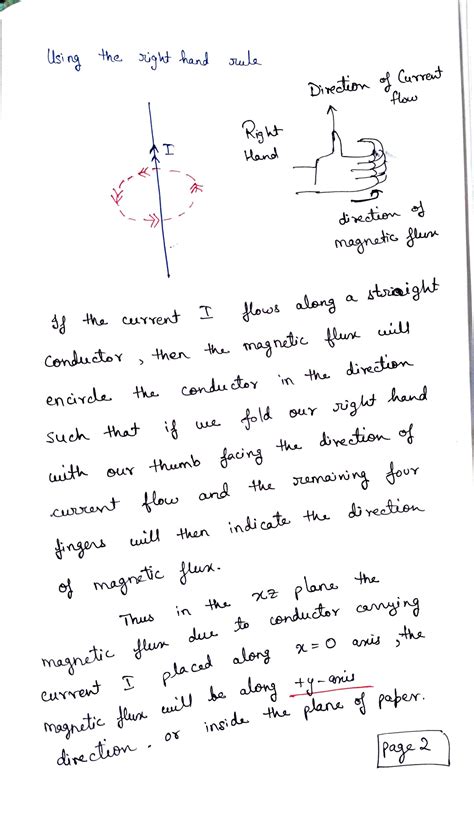 Using the right hand rule
I
Right
Hand
Direction of Current
flow
direction of
magnetic flux
If the current I flows along a straight
conductor, then the magnetic flux will
encircle the conductor in the direction
such that if we fold our right hand
with our thumb facing the direction of
current flow and the remaining four
fingers will then indicate the direction
of magnetic flux.
Thus in the xz plane the
magnetic flux due to conductor carrying
current I placed along x=0 axis, the
magnetic flux will be along +y-axis
direction. or inside the plane of paper.
page 2